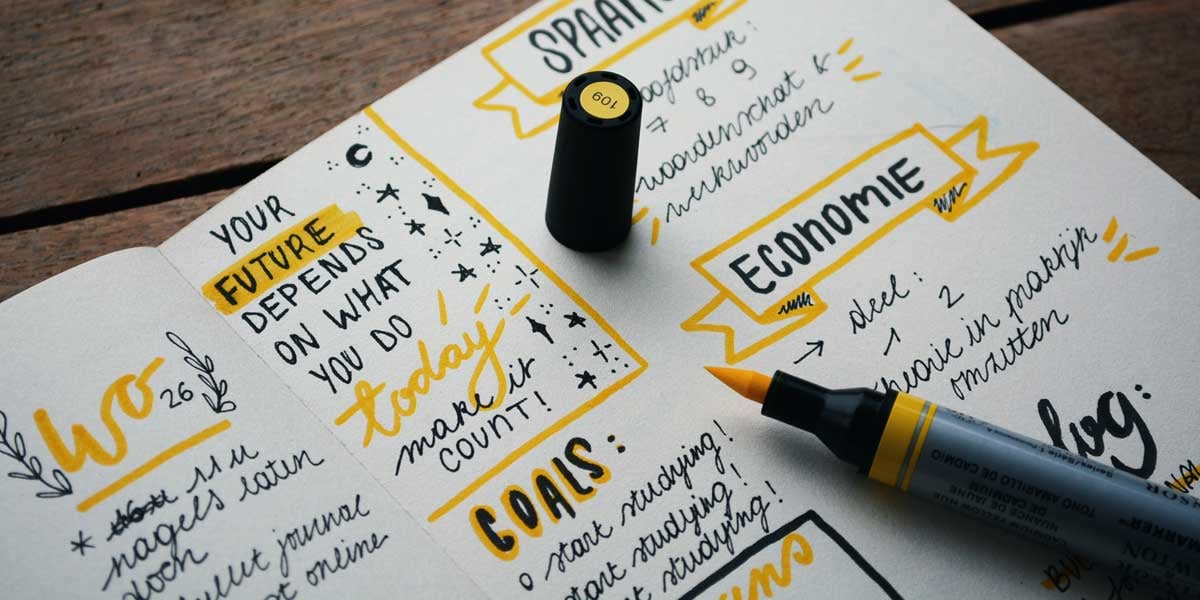 Wo
26
* 11 u
nagels laten
doen
bullet journal
online
YOUR
FUTURE
DEPENDS
ON WHAT
YOU DO
today
make it
COUNT!
GOALS:
o start studying!
start studying!
studying!
109
hoofdstuk:
7 8 9
woordenschat &
werkwoorden
ECONOMIE
→ deel:
1 2
theorie in praktijk
omzetten
CADMIUM YELLOW HUE
NUANCE DE JAUNE
CADMIUM
TONO AMARILLO DE CADMIO